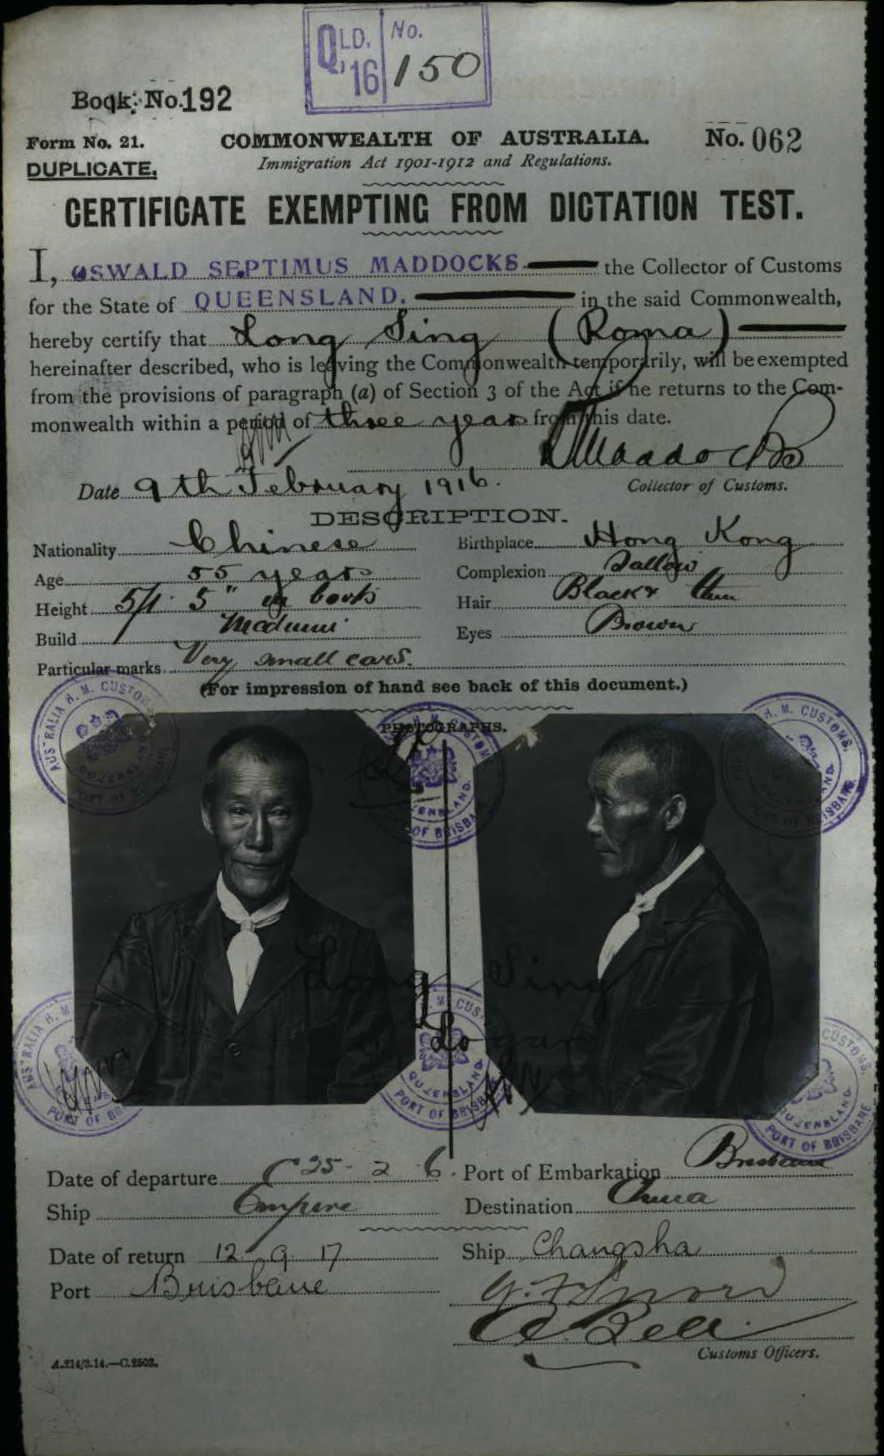 QLD. '16 No. 150
Book No. 192
Form No. 21.
COMMONWEALTH OF AUSTRALIA.
No. 062
DUPLICATE.
Immigration Act 1901-1912 and Regulations.
CERTIFICATE EXEMPTING FROM DICTATION TEST.
I, OSWALD SEPTIMUS MADDOCKS the Collector of Customs
for the State of QUEENSLAND. in the said Commonwealth,
hereby certify that Long Sing (Roma)
hereinafter described, who is leaving the Commonwealth temporarily, will be exempted
from the provisions of paragraph (a) of Section 3 of the Act if he returns to the Com-
monwealth within a period of three years from this date.
Maddocks
Date 9th February 1916.
Collector of Customs.
DESCRIPTION.
Nationality Chinese
Birthplace Hong Kong
Age 55 years
Complexion Sallow
Height 5ft 5" in boots
Hair Black & thin
Build Medium
Eyes Brown
Particular marks Very small ears.
(For impression of hand see back of this document.)
PHOTOGRAPHS.
AUSTRALIA H. M. CUSTOMS. QUEENSLAND PORT OF BRISBANE
Long Sing
Logan
Date of departure 25-2 6. Port of Embarkation Brisbane
Ship Empire Destination China
Date of return 12 9 17 Ship Changsha
Port Brisbane
Bell
Customs Officers.
A.214/3.14.—C.2503.